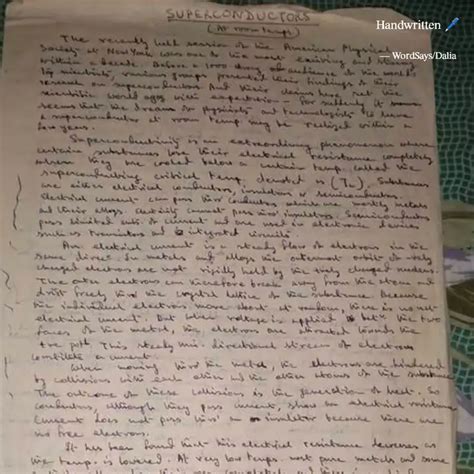 Handwritten 🖊️
— WordSays/Dalia
SUPERCONDUCTORS
(At room temp)
The recently held session of the American Physical
Society at New York was one of the most exciting and
within a decade. Before a 1000 audience of the world's
top scientists, various groups presented their findings of their
research on superconductors and their claims have set the
scientific world agog with expectation - for suddenly it now
seems that the dream of physicists and technologists to have
a superconductor at room temp may be realized within a
few years.
Superconductivity is an extraordinary phenomenon where
certain substances lose their electrical resistance completely
when they are cooled below a certain temp. called the
superconducting critical temp. denoted as (Tc). Substances
are either electrical conductors, insulators or semiconductors.
Electrical current can pass thro' conductors which are mostly metals
and their alloys. Electricity cannot pass thro' insulators. Semiconductors
pass limited amt of current and are used in electronic devices
such as transistors and integrated circuits.
An electrical current is a steady flow of electrons in the
same direct. In metals and alloys the outermost orbit of -vely
charged electrons are not rigidly held by the +vely charged nucleus.
The outer electrons can therefore break away from the atom and
drift freely thro' the crystal lattice of the substance. Because
the individual electrons move about at random, there is no net
electrical current. But when voltage is applied, betn the two
faces of the metal, the electrons are attracted towards the
+ve pole. This steady uni-directional stream of electrons
constitute a current.
When moving thro' the metal, the electrons are hindered
by collisions with each other and the other atoms of the substance
The outcome of these collisions is the generation of heat. So
conductors, although they pass current, show an electrical resistance
Current does not pass thro' an insulator because there are
no free electrons.
It has been found that this electrical resistance decreases as
the temp. is lowered. At very low temps. most pure metals and some